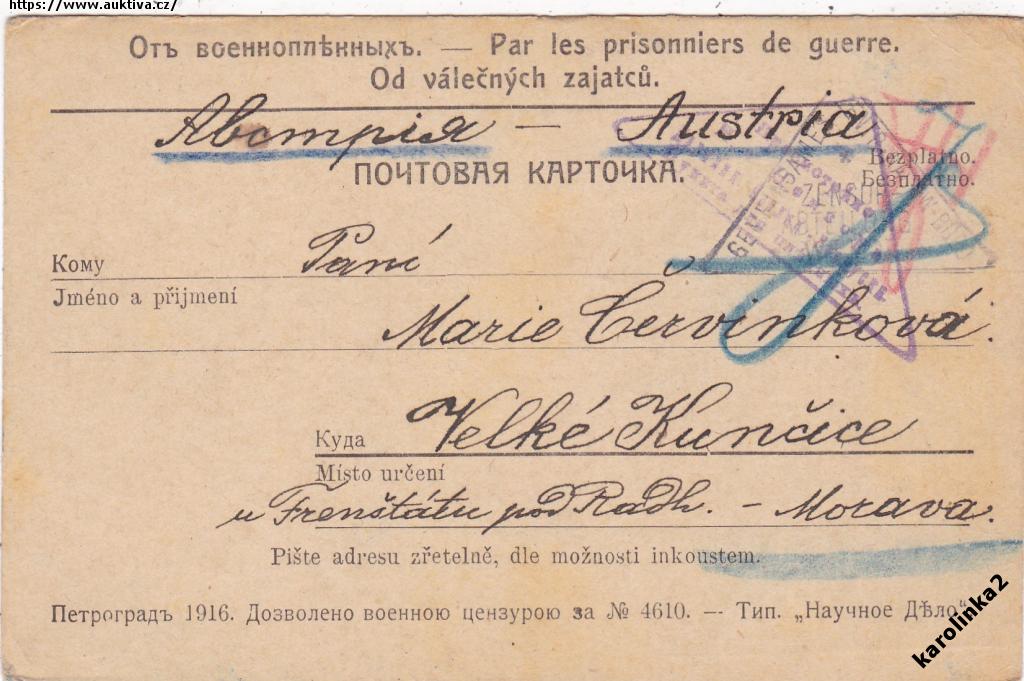 https://www.auktiva.cz/
Отъ военноплѣнныхъ. — Par les prisonniers de guerre.
Od válečných zajatců.
Австрія — Austria
ПОЧТОВАЯ КАРТОЧКА.
Bezplatno.
Безплатно.
ZENSUR
Кому Paní
Jméno a přijmení
Marie Červinková.
Куда Velké Kunčice
Místo určení
u Frenštátu pod Radh. - Morava.
Pište adresu zřetelně, dle možnosti inkoustem.
Петроградъ 1916. Дозволено военною цензурою за № 4610. — Тип. „Научное Дѣло“
karolinka2